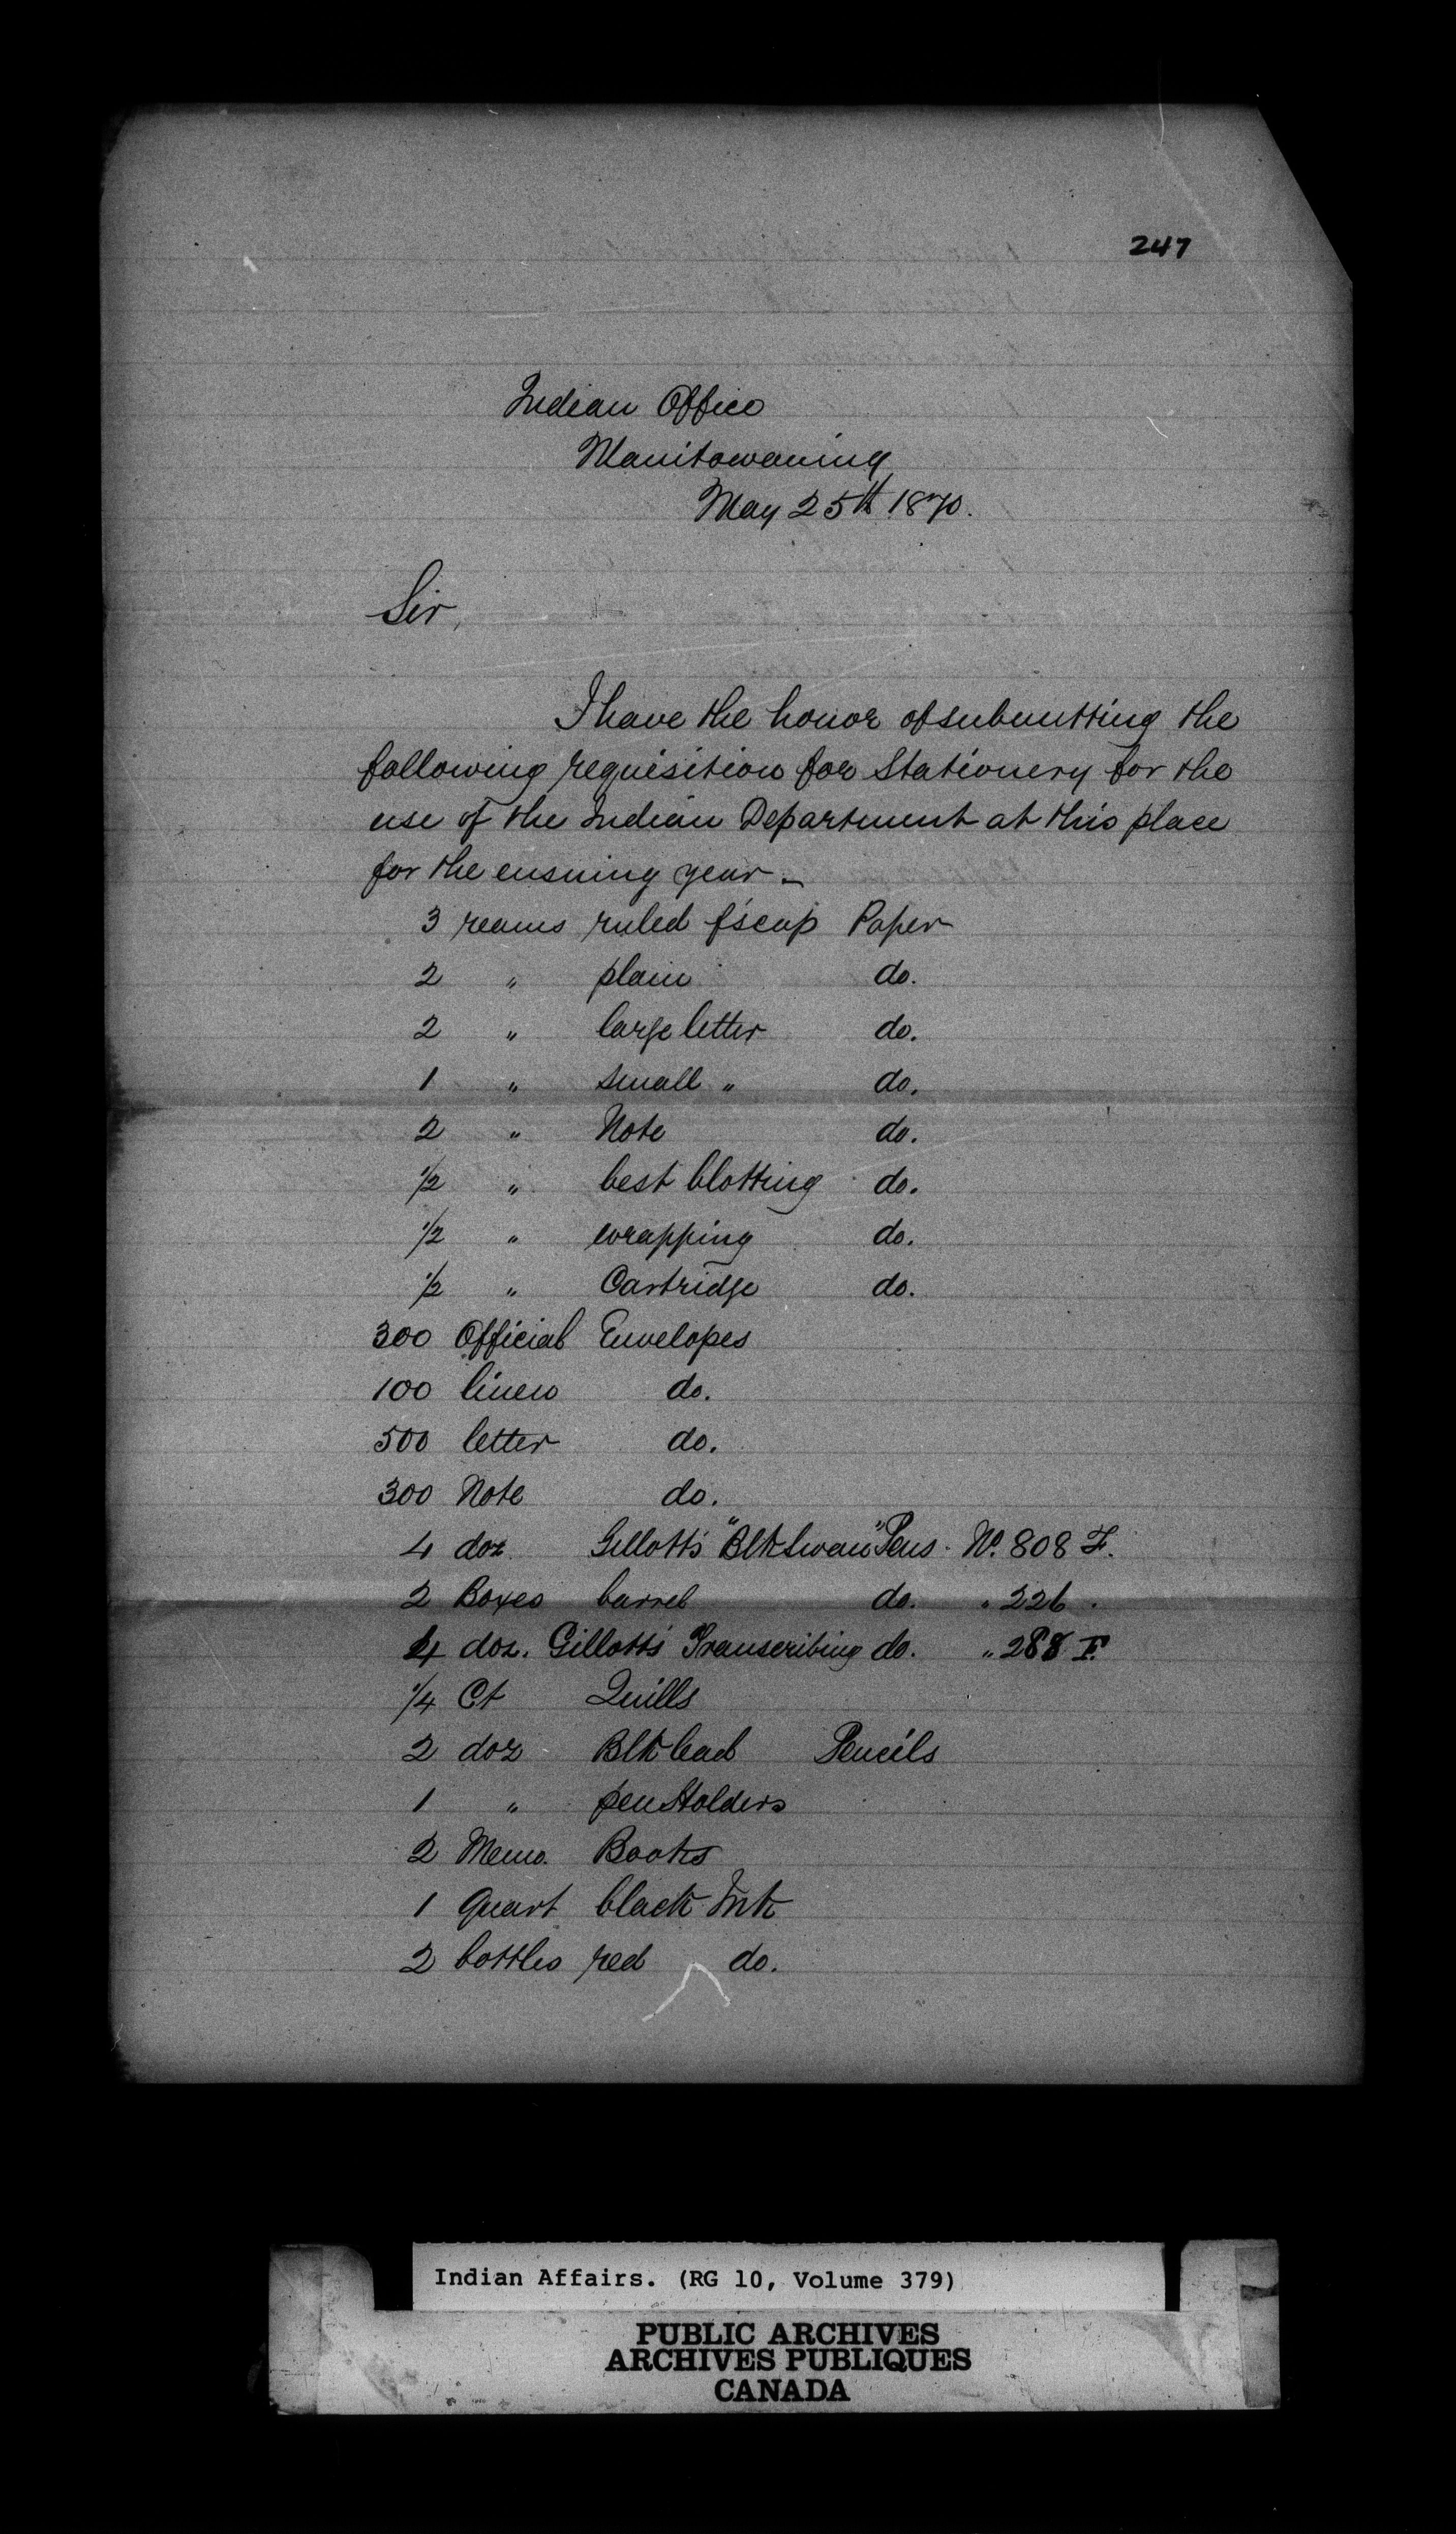 247
Indian Office
Manitowaning
May 25th 1870.
Sir,
I have the honor of submitting the
following requisition for Stationery for the
use of the Indian Department at this place
for the ensuing year –
3 reams ruled f'scap Paper
2 " plain do.
2 " large letter do.
1 " small " do.
2 " Note do.
1/2 " best blotting do.
1/2 " wrapping do.
1/2 " Cartridge do.
300 Official Envelopes
100 linen do.
500 letter do.
300 Note do.
4 doz Gillott's "Blk Swan" Pens - No. 808 F.
2 Boxes barrel do. " 226 .
4 doz. Gillott's Transcribing do. " 288 F.
1/4 Ct Quills
2 doz Blk lead Pencils
1 " pen Holders
2 Memo. Books
1 Quart black Ink
2 bottles red do.
Indian Affairs. (RG 10, Volume 379)
PUBLIC ARCHIVES
ARCHIVES PUBLIQUES
CANADA